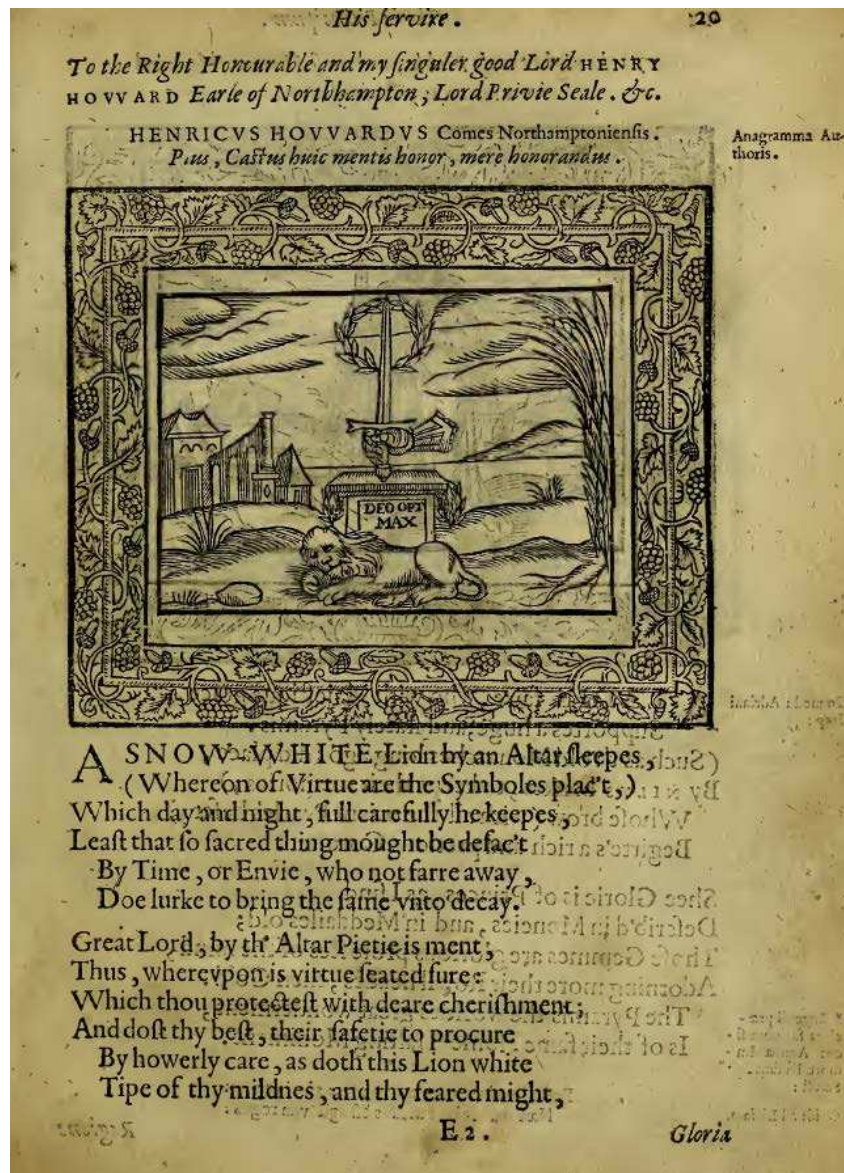 His ſervire. 20
To the Right Honourable and my ſinguler good Lord HENRY
HOVVARD Earle of Northhampton, Lord Privie Seale. &c.
HENRICVS HOVVARDVS Comes Northamptonienſis.
Pius, Caſtus huic mentis honor, merè honorandus.
Anagramma Au-
thoris.
DEO OPT
MAX
A SNOW-WHITE Lion by an Altar ſleepes,
(Whereon of Virtue are the Symboles plac't,)
Which day and night, full carefully he keepes,
Leaſt that ſo ſacred thing mought be defac't
By Time, or Envie, who not farre away,
Doe lurke to bring the ſame vnto decay.
Great Lord, by th' Altar Pietie is ment;
Thus, wherevpon is virtue ſeated ſure:
Which thou protecteſt with deare cheriſhment;
And doſt thy beſt, their ſafetie to procure
By howerly care, as doth this Lion white
Tipe of thy mildnes, and thy feared might,
E 2. Gloria